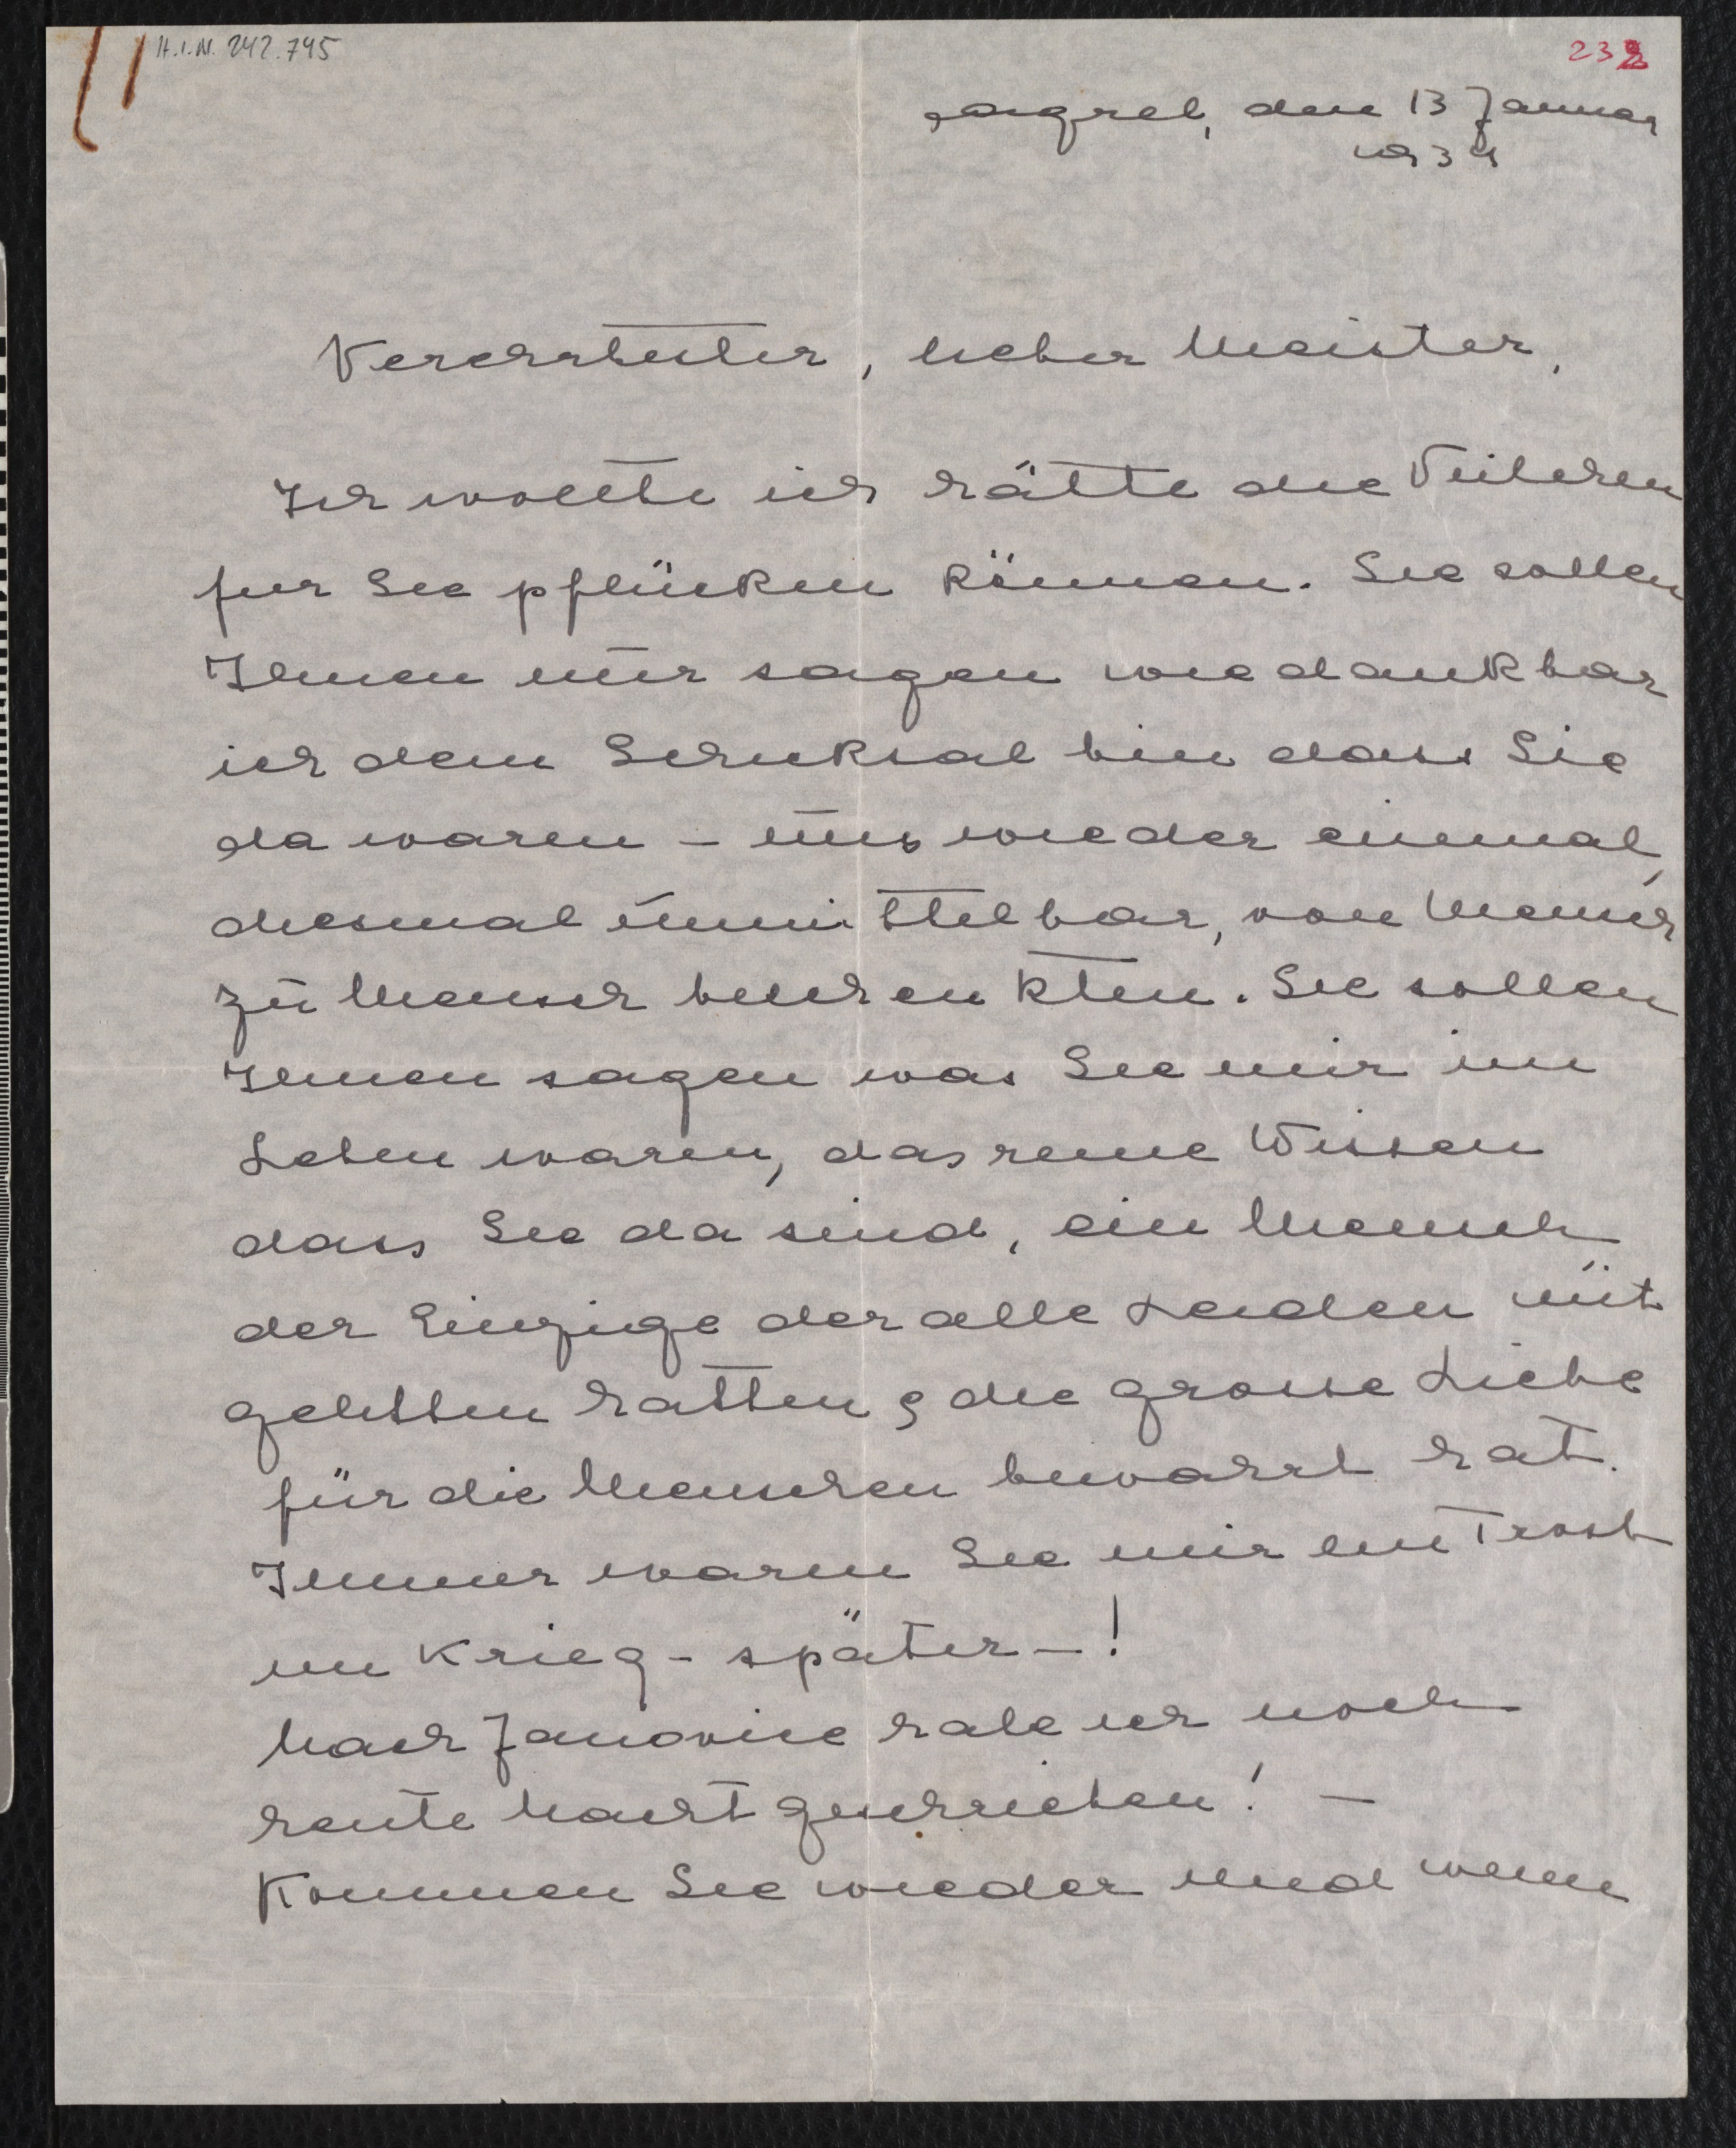 H.I.N. 242.795
232
Zagreb, den 13 Januar
1934
Verehrtester, lieber Meister,
Ich wollte ich hätte die Veilchen
für Sie pflücken können. Sie sollen
Ihnen nur sagen wie dankbar
ich dem Schicksal bin dass Sie
da waren – uns wieder einmal,
diesmal unmittelbar, von Mensch
zu Mensch beschenkten. Sie sollen
Ihnen sagen was Sie mir im
Leben waren, das reine Wissen
dass Sie da sind, ein Mensch
der Einzige der alle Leiden mit
gelitten hatten & die grosse Liebe
für die Menschen bewahrt hat.
Immer waren Sie mir ein Trost
im Krieg – später – !
Nach habe ich noch
heute Nacht geschrieben! –
Kommen Sie wieder und wenn